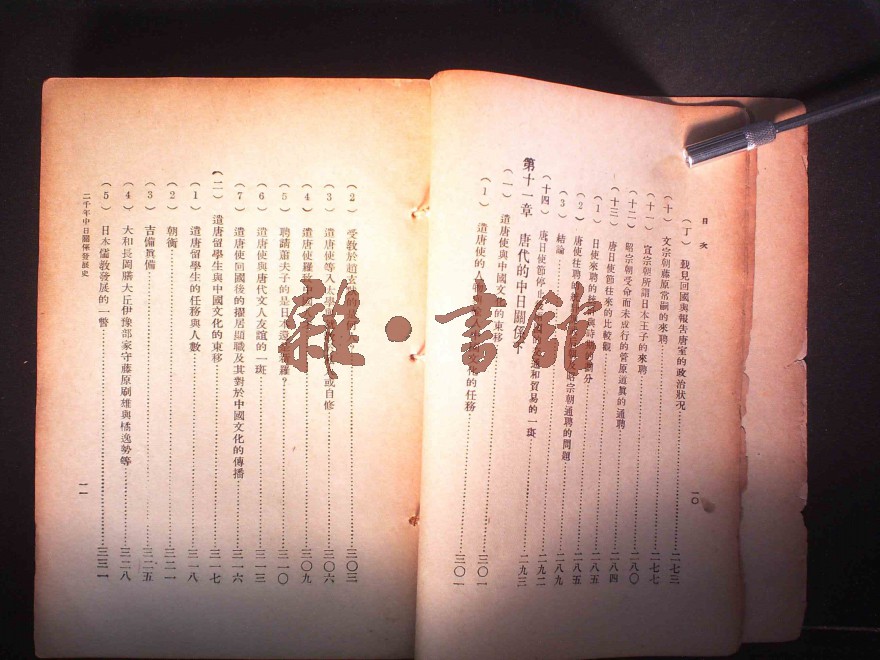 目次
一〇
(丁)我見回國與報告唐室的政治狀况 二七三
(十)文宗朝藤原常嗣的來聘 二七七
(十一)宣宗朝所謂日本王子的來聘 二八〇
(十二)昭宗朝受命而未成行的菅原道眞的通聘 二八四
(十三)唐日使節往來的比較觀 二八五
(1)日使來聘的 時 分 二八五
(2)唐使往聘的 昭宗朝通聘的問題 二八九
(3)結論 二九二
(十四)唐日使節停 和貿易的一斑 二九三
第十一章 唐代的中日關係
(一)遣唐使與中國文化的東移 三〇一
(1)遣唐使的人 文化的任務 三〇一
(2)受敎於趙玄 三〇三
(3)遣唐使等入太學 或自修 三〇六
(4)遣唐使羅致中 三〇九
(5)聘請蕭夫子的是日本還 新羅? 三一〇
(6)遣唐使與唐代文人友誼的一斑 三一三
(7)遣唐使回國後的擢居顯職及其對於中國文化的傳播 三一六
(二)遣唐留學生與中國文化的東移 三一七
(1)遣唐留學生的任務與人數 三一八
(2)朝衡 三二一
(3)吉備眞備 三二五
(4)大和長岡膳大丘伊豫部家守藤原刷雄與橘逸勢等 三二八
(5)日本儒敎發展的一瞥 三三一
二千年中日關係發展史
一一
雜·書館